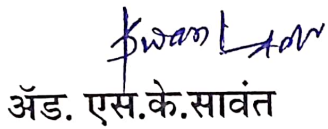 ॲड. एस.के.सावंत